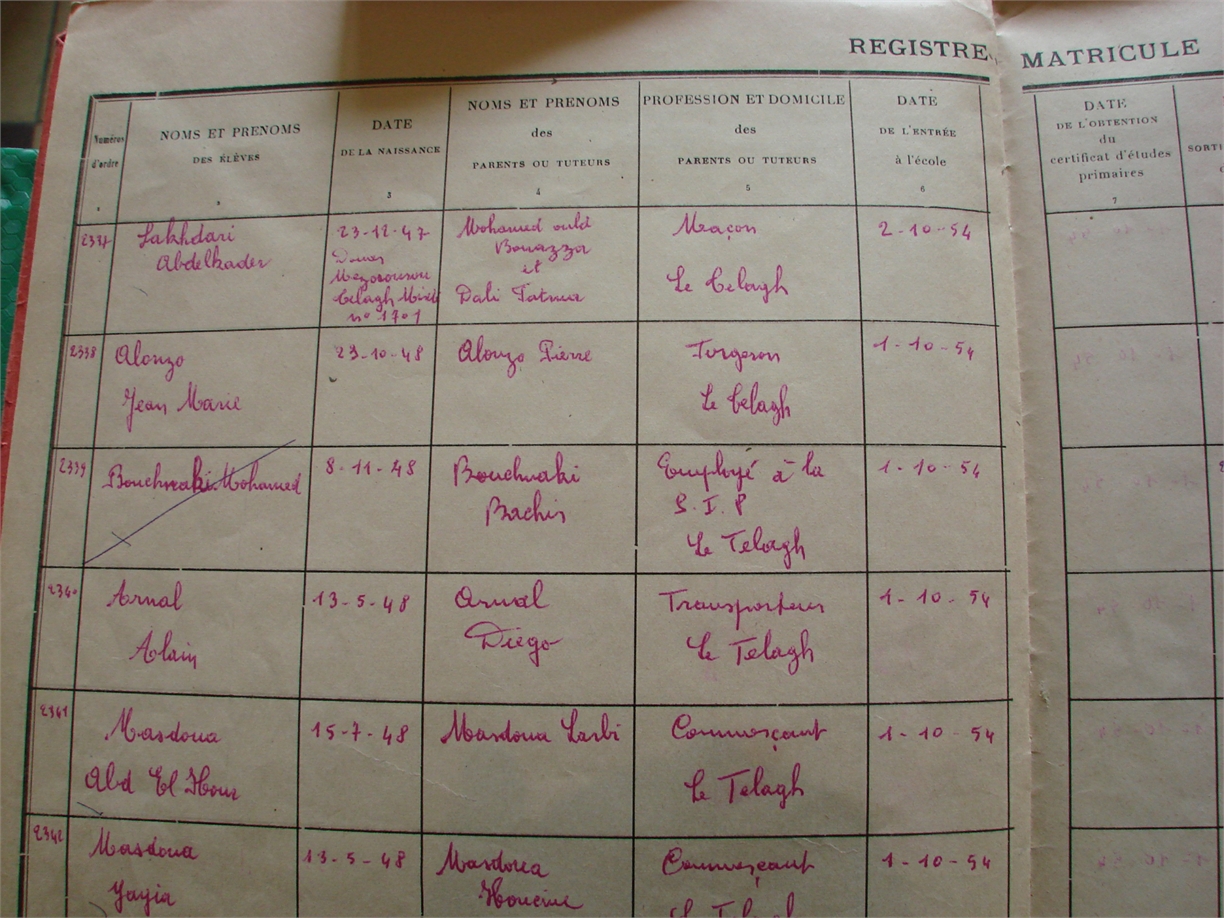 REGISTRE MATRICULE
Numéros d'ordre
NOMS ET PRENOMS
DES ÉLÈVES
DATE
DE LA NAISSANCE
3
NOMS ET PRENOMS
des
PARENTS OU TUTEURS
4
PROFESSION ET DOMICILE
des
PARENTS OU TUTEURS
5
DATE
DE L'ENTRÉE
à l'école
6
DATE
DE L'OBTENTION
du
certificat d'études
primaires
7
SORTI
2337
Lakhdari
Abdelkader
23-12-47
Douar
Telagh
no 1701
Mohamed ould
Bouazza
et
Dali Fatma
Maçon
Le Telagh
2-10-54
2338
Alonzo
Jean Marie
23-10-48
Alonzo Pierre
Forgeron
Le Telagh
1-10-54
2339
Bouchnaki Mohamed
8-11-48
Bouchnaki
Bachir
Employé à la
S.I.P
Le Telagh
1-10-54
2340
Arnal
Alain
13-5-48
Arnal
Diégo
Transporteur
Le Telagh
1-10-54
2341
Masdoua
Abd El Hour
15-7-48
Masdoua Larbi
Commerçant
Le Telagh
1-10-54
2342
Masdoua
Yayia
13-5-48
Masdoua
Houcine
Commerçant
Le Telagh
1-10-54